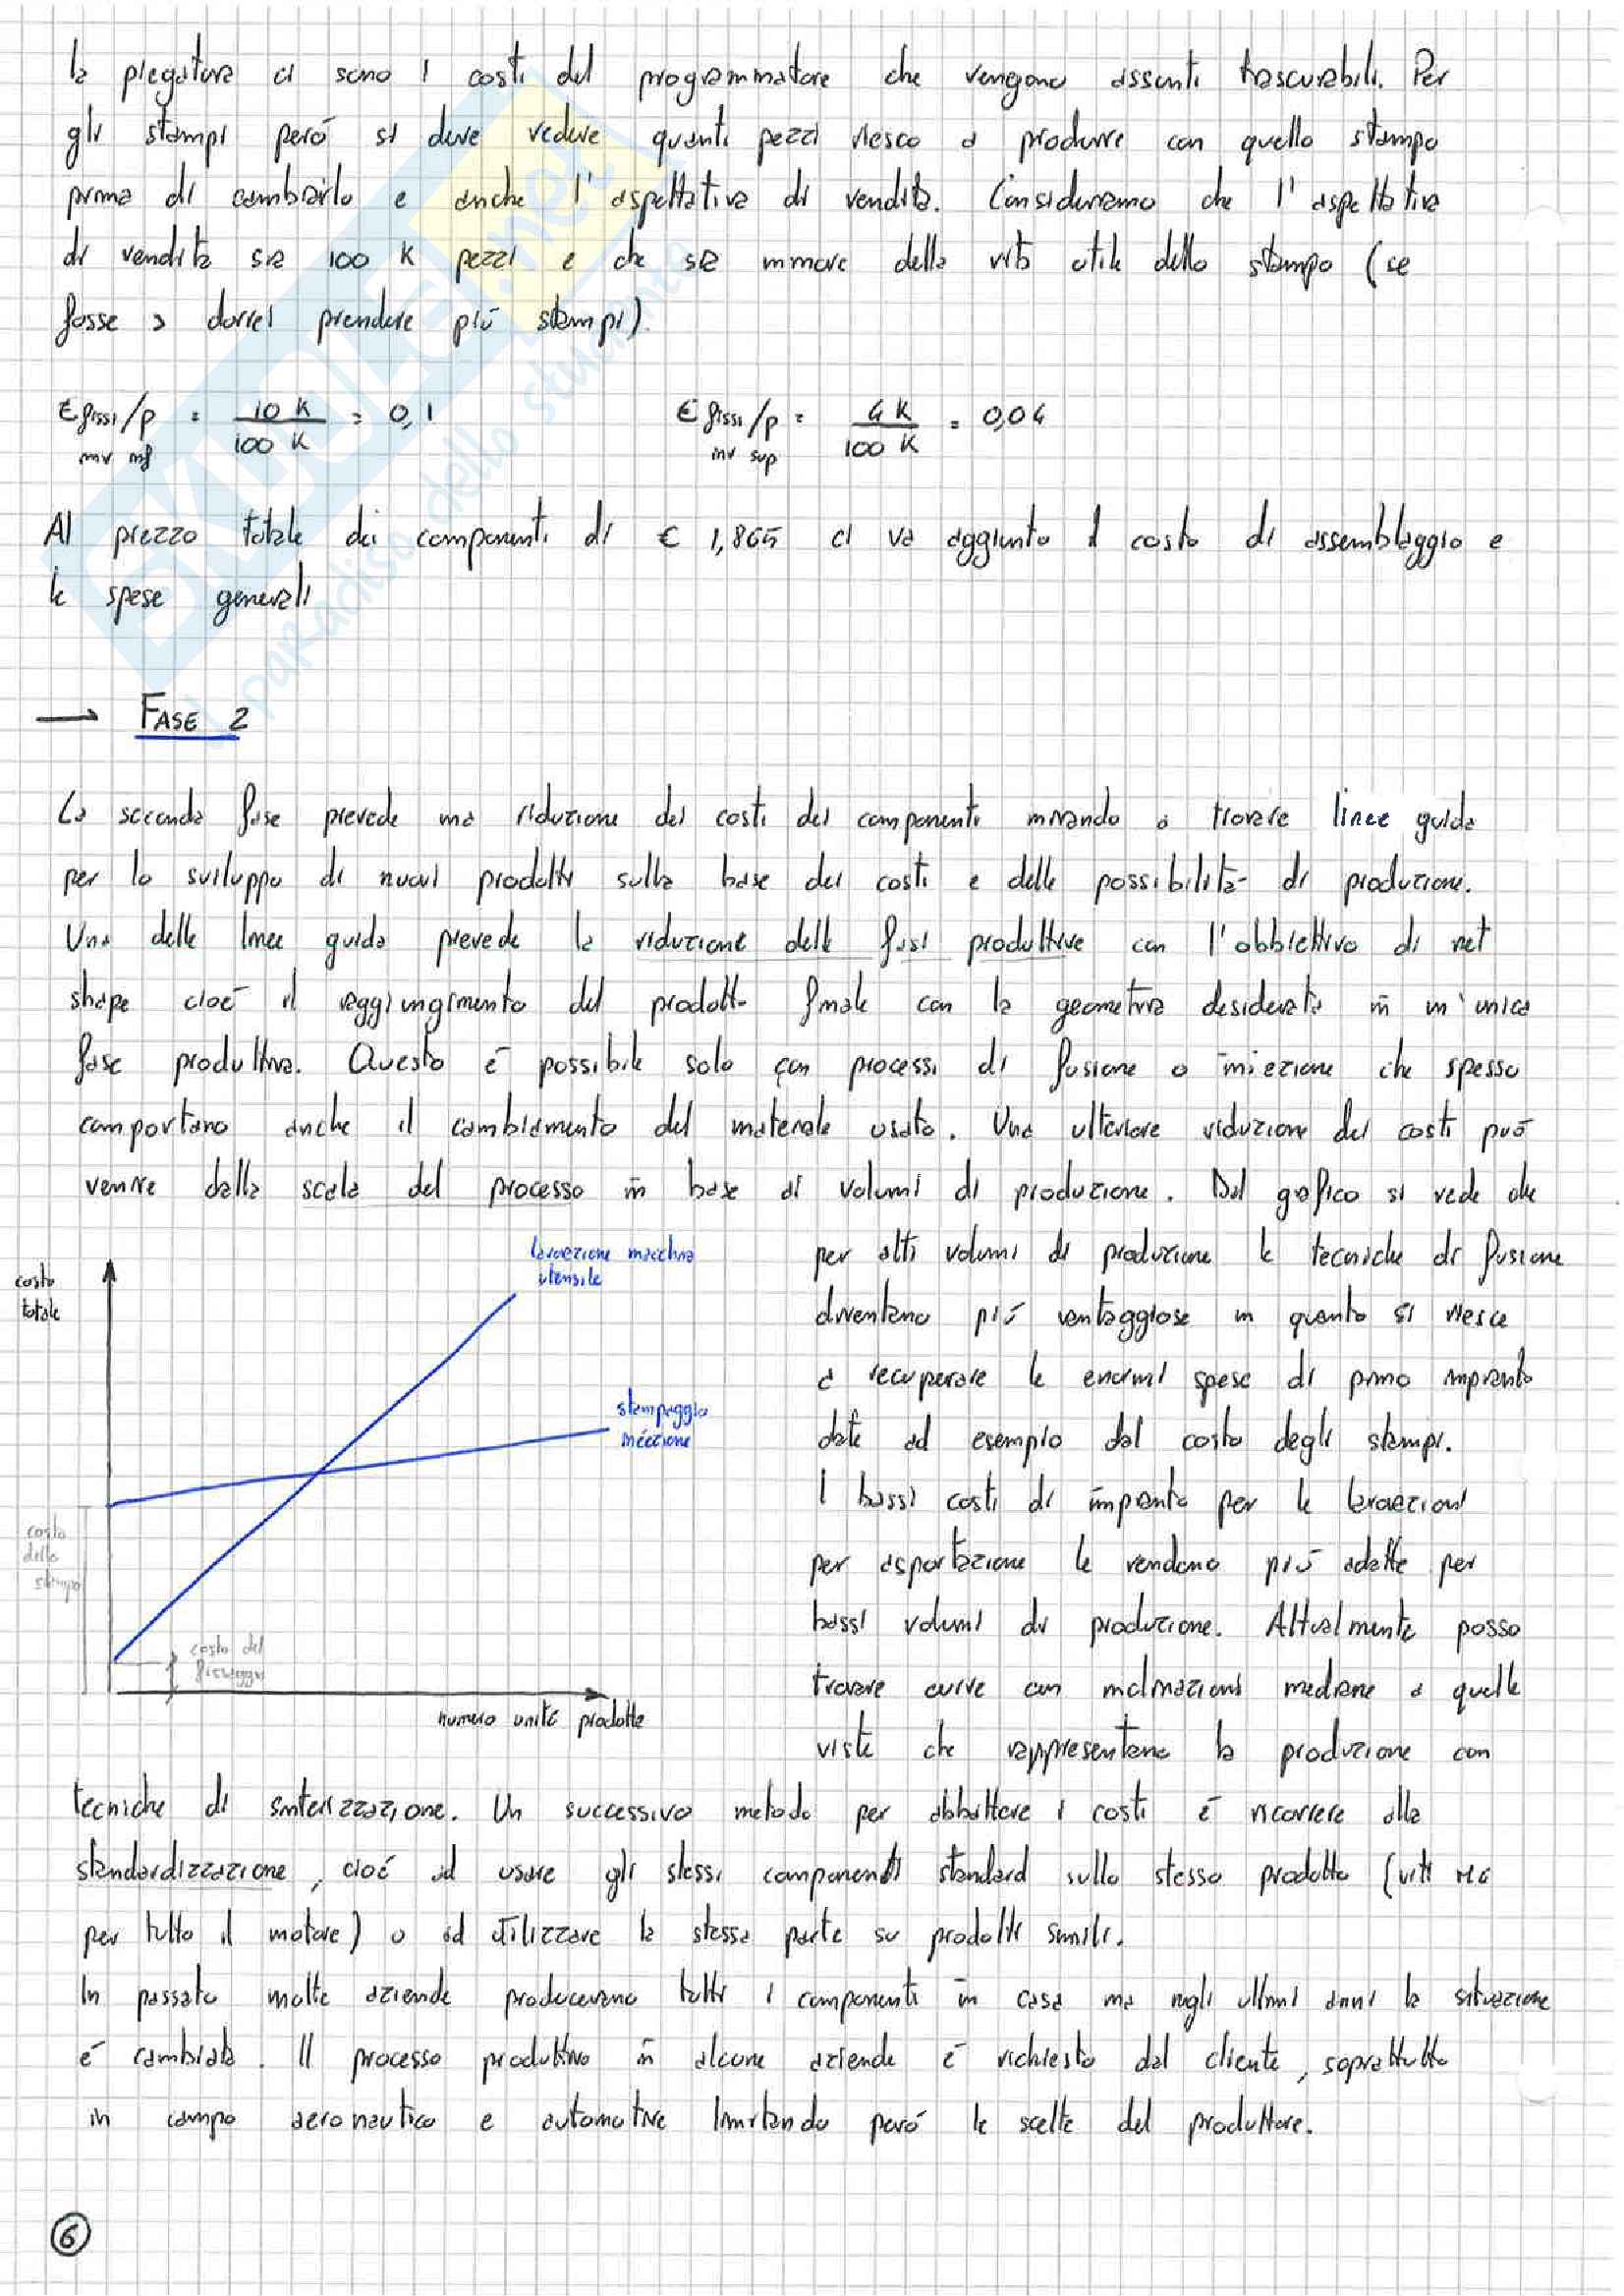 la piegatura ci sono i costi del programmatore che vengono assunti trascurabili. Per
gli stampi però si deve vedere quanti pezzi riesco a produrre con quello stampo
prima di cambiarlo e anche l'aspettativa di vendita. Consideriamo che l'aspettativa
di vendita sia 100 K pezzi e che sia minore della vita utile dello stampo (se
fosse > dovrei prendere più stampi).
€ fissi/p = 10 K / 100 K = 0,1 € fissi/p = 4 K / 100 K = 0,04
inv inf inv sup
Al prezzo totale dei componenti di € 1,865 ci va aggiunto il costo di assemblaggio e
le spese generali
→ FASE 2
La seconda fase prevede una riduzione dei costi dei componenti mirando a trovare linee guida
per lo sviluppo di nuovi prodotti sulla base dei costi e delle possibilità di produzione.
Una delle linee guida prevede la riduzione delle fasi produttive con l'obbiettivo di net
shape cioè il raggiungimento del prodotto finale con la geometria desiderata in un'unica
fase produttiva. Questo è possibile solo con processi di fusione o iniezione che spesso
comportano anche il cambiamento del materiale usato. Una ulteriore riduzione dei costi può
venire dalla scala del processo in base ai volumi di produzione. Dal grafico si vede che
per alti volumi di produzione le tecniche di fusione
diventano più vantaggiose in quanto si riesce
a recuperare le enormi spese di primo impianto
date ad esempio dal costo degli stampi.
I bassi costi di impianto per le lavorazioni
per asportazione le rendono più adatte per
bassi volumi di produzione. Attualmente posso
trovare curve con inclinazioni mediane a quelle
viste che rappresentano la produzione con
costo
totale
lavorazione macchina
utensile
stampaggio
iniezione
costo
dello
stampo
costo del
fissaggio
numero unità prodotte
tecniche di sinterizzazione. Un successivo metodo per abbattere i costi è ricorrere alla
standardizzazione, cioè ad usare gli stessi componenti standard sullo stesso prodotto (viti M6
per tutto il motore) o ad utilizzare la stessa parte su prodotti simili.
In passato molte aziende producevano tutti i componenti in casa ma negli ultimi anni la situazione
è cambiata. Il processo produttivo in alcune aziende è richiesto dal cliente, soprattutto
in campo aeronautico e automotive limitando però le scelte del produttore.
6
SKUOLA.net
il paradiso dello studente